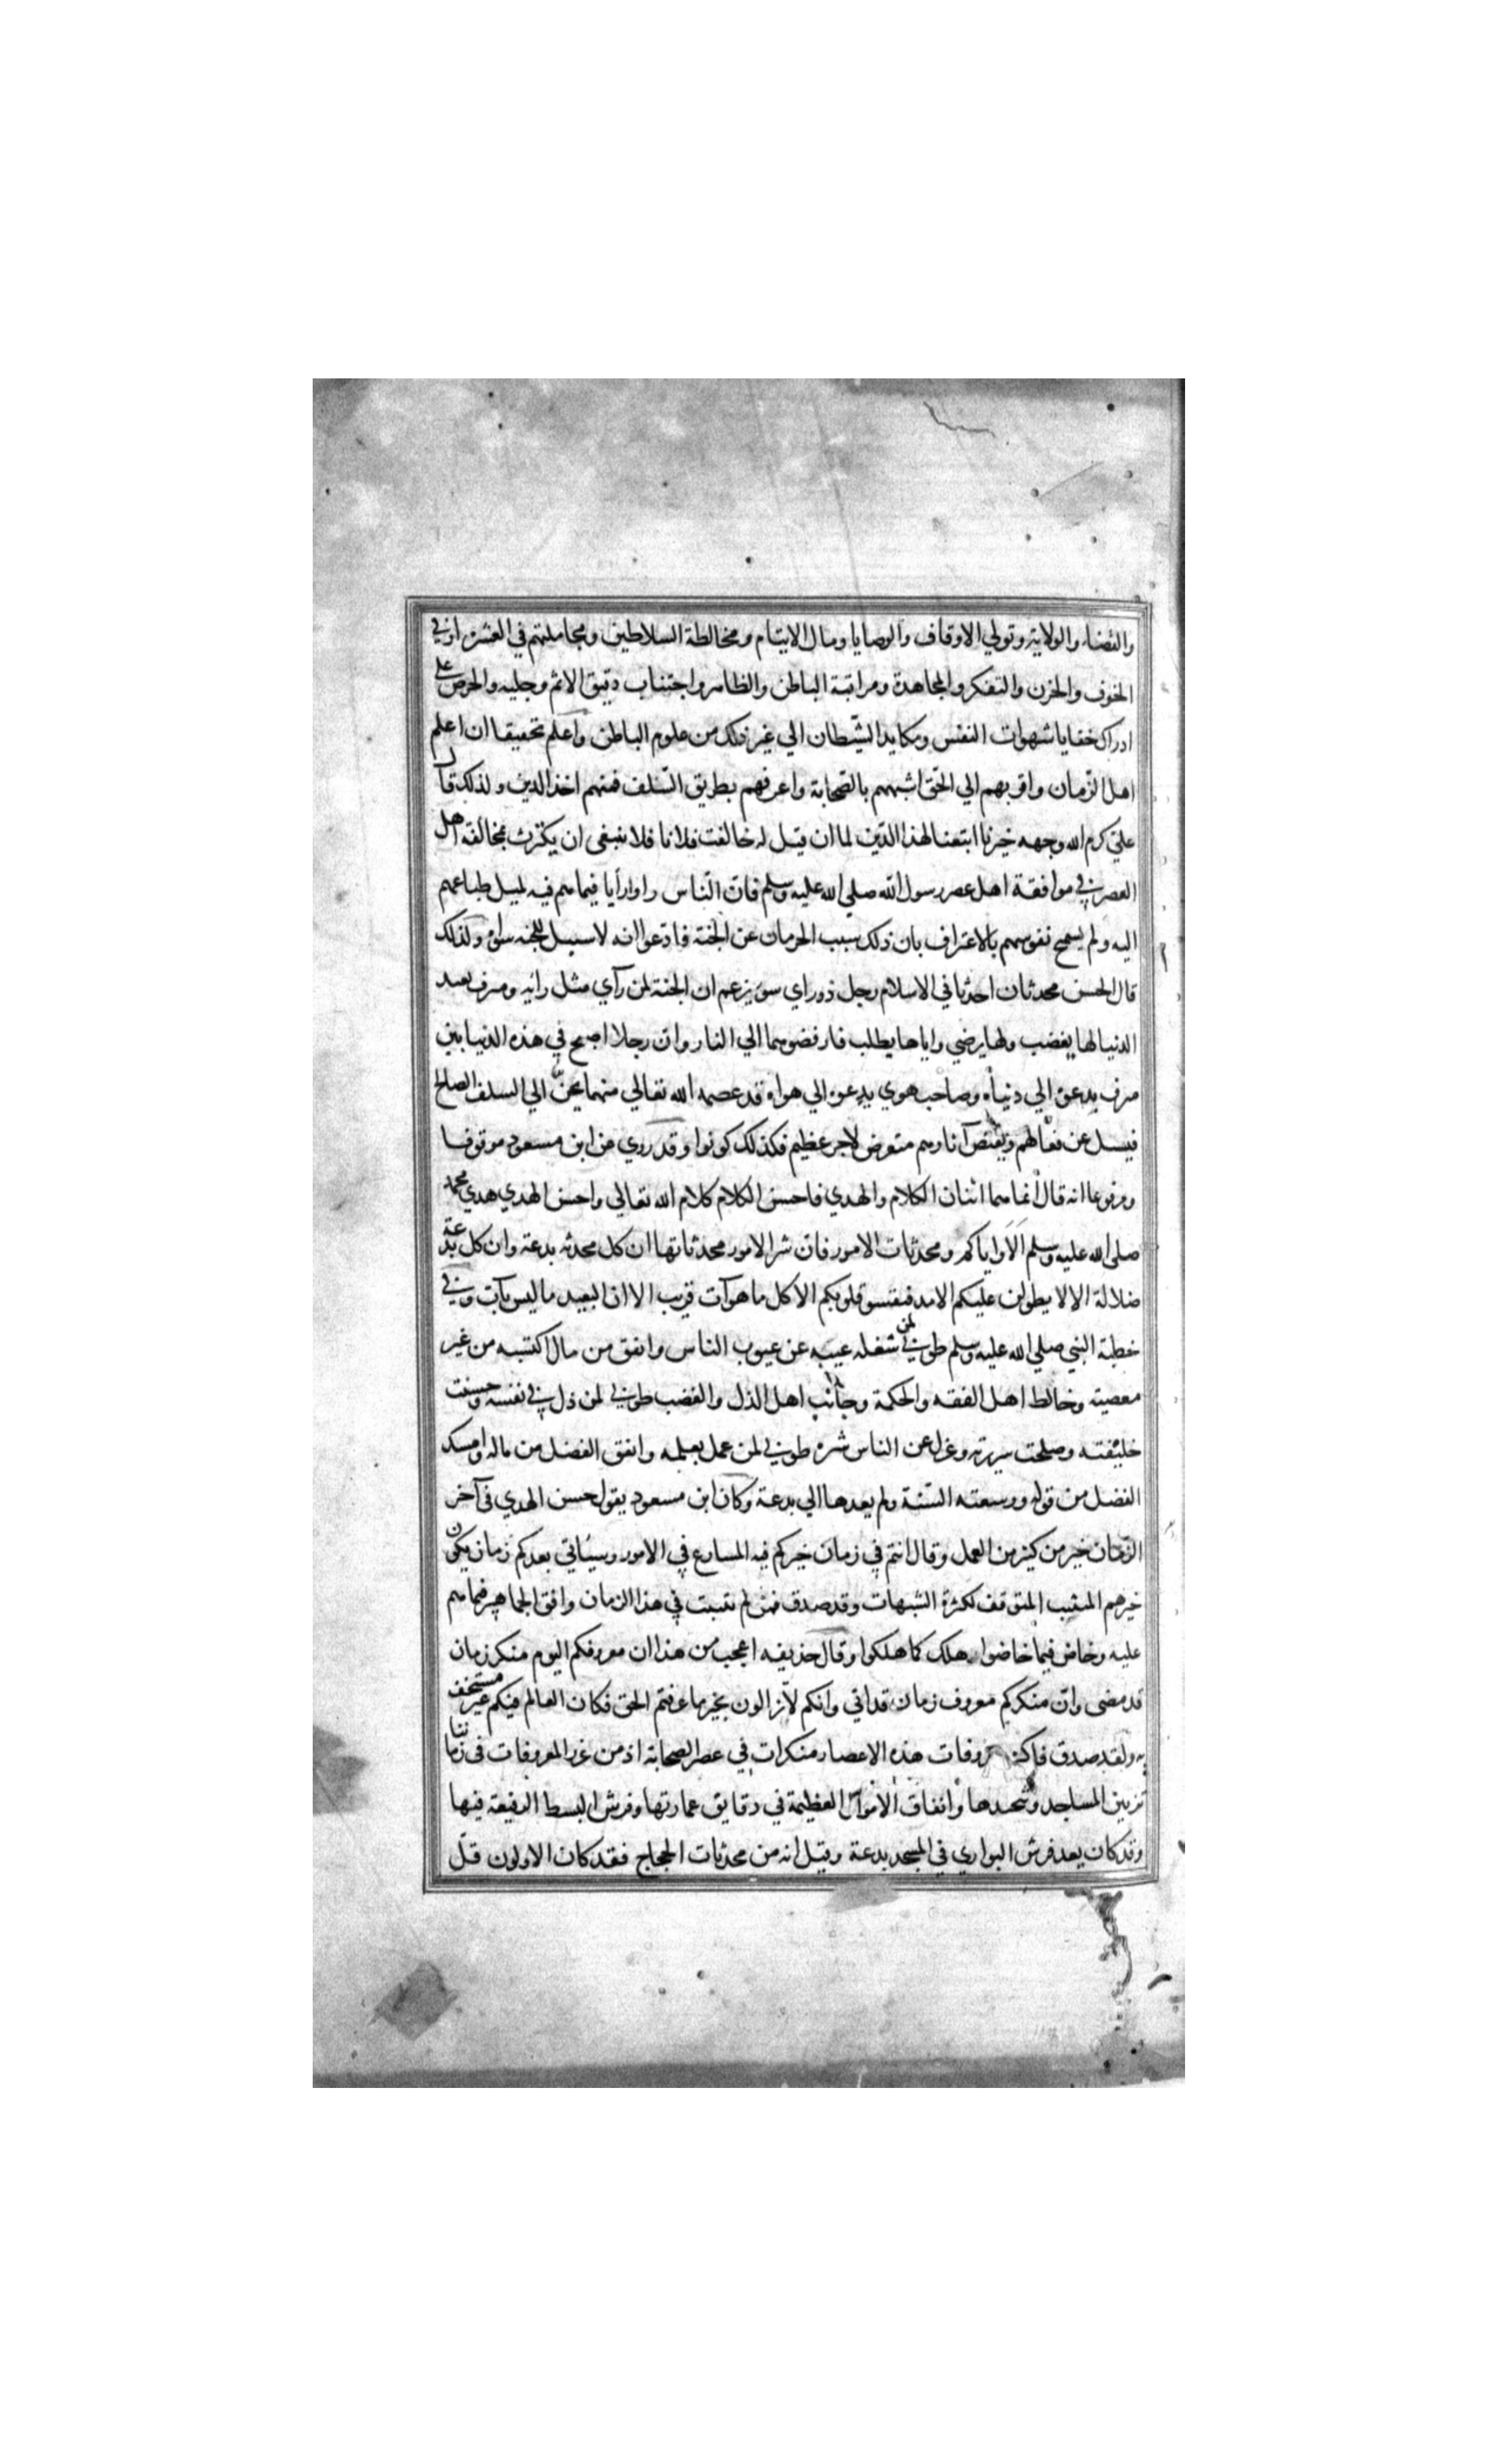 والقضاء والولاية وتولي الاوقاف والوصايا ومال الايتام ومخالطة السلاطين ومجاملتهم في العشرة او في
الخوف والحزن والتفكر والمجاهدة ومراقبة الباطن والظاهر واجتناب دقيق الاثم وجليه والحرص علي
ادراك خفايا شهوات النفس ومكايد الشيطان الي غير ذلك من علوم الباطن واعلم تحقيقا ان اعلم
اهل الزمان واقربهم الي الحق اشبههم بالصحابة واعرفهم بطريق السلف فمنهم اخذ الدين ولذلك قال
علي كرم الله وجهه خيرنا ابتعنا لهذا الدين لما ان قيل له خالفت فلانا فلا ينبغي ان يكترث بمخالفة اهل
العصر في موافقة اهل عصر رسول الله صلي الله عليه وسلم فان الناس راوا رأيا فيما هم فيه لميل طباعهم
اليه ولم يسمح نفوسهم بالاعتراف بان ذلك سبب الحرمان عن الجنة فادعوا انه لا سبيل للجنه سواه ولذلك
قال الحسن محدثان احدثا في الاسلام رجل ذو راي سوء يزعم ان الجنة لمن رآي مثل رائه ومترف يعبد
الدنيا لها يغضب ولها يرضي واياها يطلب فارفضوهما الي النار وان رجلا اصبح في هذه الدنيا بين
مترف يدعوه الي دنياه وصاحب هوي يدعوه الي هواه قد عصمه الله تعالي منهما يحنّ الي السلف الصالح
فيسل عن فعالهم ويقتص آثارهم متعرض لاجر عظيم فكذلك كونوا وقد روي عن ابن مسعود موقوفا
ومرفوعا انه قال انما هما اثنان الكلام والهدي فاحسن الكلام كلام الله تعالي واحسن الهدي هدي محمد
صلي الله عليه وسلم الا واياكم ومحدثات الامور فان شر الامور محدثاتها ان كل محدثه بدعة وان كل بدعة
ضلالة الا لا يطولن عليكم الامد فيقسو قلوبكم الا كل ما هو آت قريب الا ان البعيد ما ليس بآت وفي
خطبة النبي صلي الله عليه وسلم طوبي لمن شغله عيبه عن عيوب الناس وانفق من مال اكتسبه من غير
معصيته وخالط اهل الفقه والحكمة وجانب اهل الذل والغضب طوبي لمن ذل في نفسه وحسنت
خليفته وصلحت سريرته وعزل عن الناس شره طوبي لمن عمل بعلمه وانفق الفضل من ماله وامسك
الفضل من قوله ووسعته السنة ولم يعدها الي بدعة وكان ابن مسعود يقول حسن الهدي في آخر
الزمان خير من كثير من العمل وقال انتم في زمان خيركم فيه المسارع في الامور وسيأتي بعدكم زمان يكون
خيرهم المتقبب المتوقف لكثرة الشبهات وقد صدق فمن لم تثبت في هذا الزمان وافق الجماهير فيما هم
عليه وخاض فيما خاضوا هلك كما هلكوا وقال حذيفه اعجب من هذا ان معروفكم اليوم منكر زمان
قد مضي وان منكركم معروف زمان قد اتي وانكم لا تزالون بخير ما عرفتم الحق فكان العالم فيكم غير مستخف
به ولقد صدق فاكثر معروفات هذه الاعصار منكرات في عصر الصحابة اذ من غرر المعروفات في زماننا
تزيين المساجد وتنجيدها وانفاق الاموال العظيمة في دقايق عمارتها وفرش البسط الرفيعة فيها
وقد كان يعد فرش البواري في المسجد بدعة وقيل انه من محدثات الحجاج فقد كان الاولون قلّ